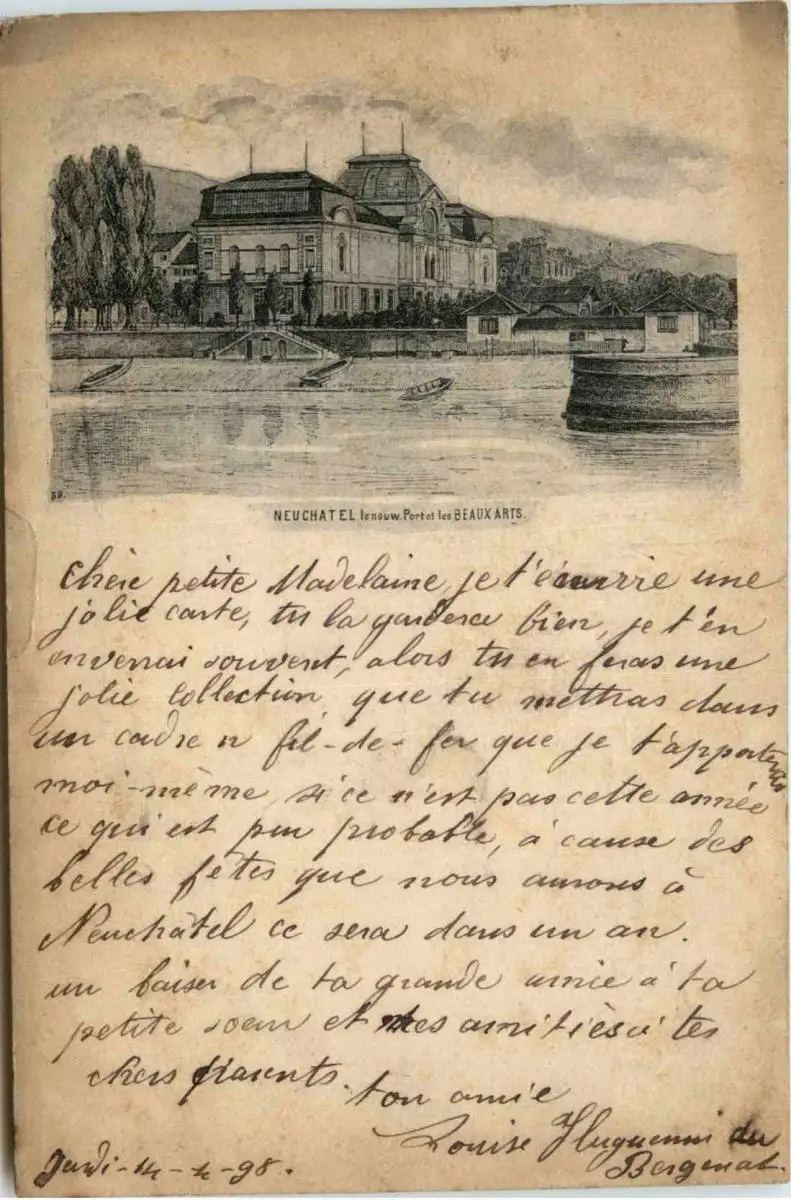 59.
NEUCHATEL le nouv. Port et les BEAUX ARTS.
Chère petite Madelaine, je t'envoie une
jolie carte, tu la garderas bien, je t'en
enverrai souvent, alors tu en feras une
jolie collection que tu mettras dans
un cadre n fil-de-fer que je t'apporterai
moi-même, si ce n'est pas cette année
ce qui est peu probable, à cause des
belles fêtes que nous aurons à
Neuchâtel ce sera dans un an.
un baiser de ta grande amie à ta
petite soeur et mes amitiés à tes
chers parents.
ton amie
Louise Huguenin du
Jeudi-14-4-98.